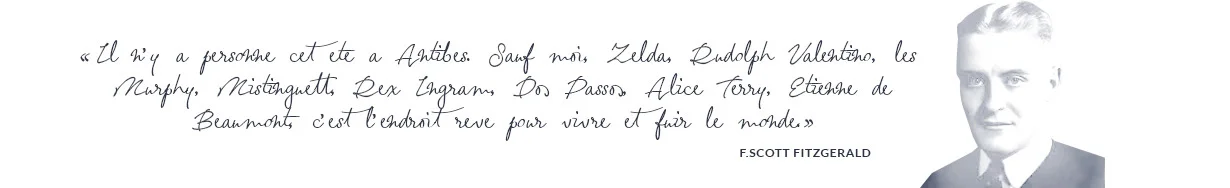 « Il n'y a personne cet ete a Antibes. Sauf moi, Zelda, Rudolph Valentino, les
Murphy, Mistinguett, Rex Ingram, Dos Passos, Alice Terry, Etienne de
Beaumont, c'est l'endroit reve pour vivre et fuir le monde.»
F.SCOTT FITZGERALD